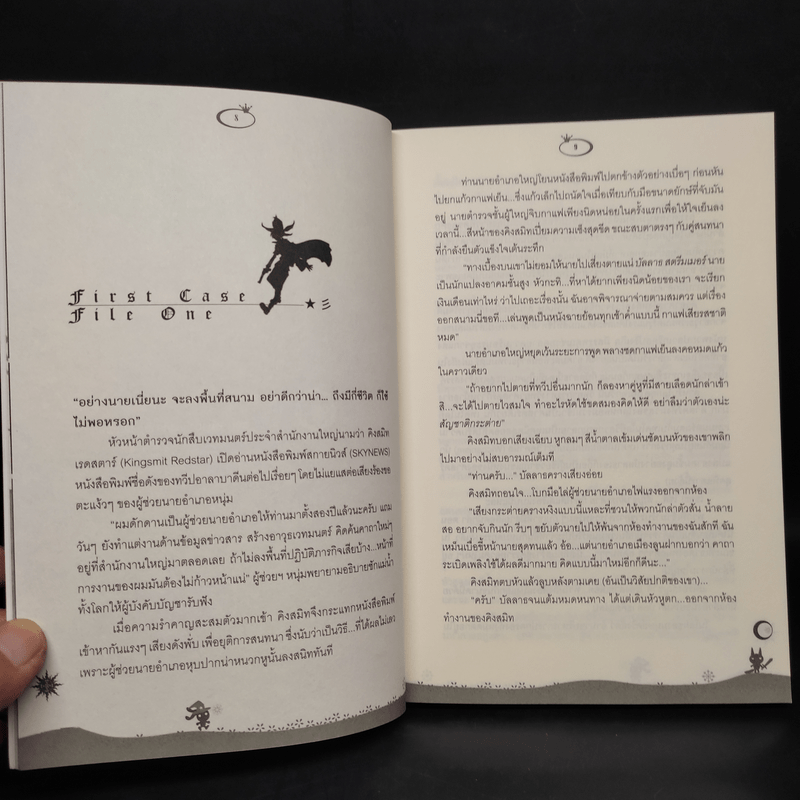 8
First Case
File One
“อย่างนายเนี่ยนะ จะลงพื้นที่สนาม อย่าดีกว่าน่า... ถึงมีกี่ชีวิต ก็ใช้
ไม่พอหรอก”
หัวหน้าตำรวจนักสืบเวทมนตร์ประจำสำนักงานใหญ่นามว่า คิงสมิท
เรดสตาร์ (Kingsmit Redstar) เปิดอ่านหนังสือพิมพ์สกายนิวส์ (SKYNEWS)
หนังสือพิมพ์ชื่อดังของทวีปอาลาบาดีนต่อไปเรื่อยๆ โดยไม่แยแสต่อเสียงร้องขอ
ตะแง้วๆ ของผู้ช่วยนายอำเภอหนุ่ม
“ผมดักดานเป็นผู้ช่วยนายอำเภอให้ท่านมาตั้งสองปีแล้วนะครับ แถม
วันๆ ยังทำแต่งานด้านข้อมูลข่าวสาร สร้างอาวุธเวทมนตร์ คิดค้นคาถาใหม่ๆ
อยู่ที่สำนักงานใหญ่มาตลอดเลย ถ้าไม่ลงพื้นที่ปฏิบัติภารกิจเสียบ้าง...หน้าที่
การงานของผมมันต้องไม่ก้าวหน้าแน่” ผู้ช่วยฯ หนุ่มพยายามอธิบายชักแม่น้ำ
ทั้งโลกให้ผู้บังคับบัญชารับฟัง
เมื่อความรำคาญสะสมตัวมากเข้า คิงสมิทจึงกระแทกหนังสือพิมพ์
เข้าหากันแรงๆ เสียงดังพั่บ เพื่อยุติการสนทนา ซึ่งนับว่าเป็นวิธี...ที่ได้ผลไม่เลว
เพราะผู้ช่วยนายอำเภอหุบปากน่าหนวกหูนั้นลงสนิททันที
9
ท่านนายอำเภอใหญ่โยนหนังสือพิมพ์ไปตกข้างตัวอย่างเบื่อๆ ก่อนหัน
ไปยกแก้วกาแฟเย็น...ซึ่งแก้วเล็กไปถนัดใจเมื่อเทียบกับมือขนาดยักษ์ที่จับมัน
อยู่ นายตำรวจชั้นผู้ใหญ่จิบกาแฟเพียงนิดหน่อยในครั้งแรกเพื่อให้ใจเย็นลง
เวลานี้...สีหน้าของคิงสมิทเปี่ยมความเซ็งสุดขีด ขณะสบตาตรงๆ กับคู่สนทนา
ที่กำลังยืนตัวแข็งใจเต้นระทึก
“ทางเบื้องบนเขาไม่ยอมให้นายไปเสี่ยงตายแน่ บัลลาธ สตรีมเมอร์ นาย
เป็นนักแปลงอาคมชั้นสูง หัวกะทิ...ที่หาได้ยากเพียงนิดน้อยของเรา จะเรียก
เงินเดือนเท่าไหร่ ว่าไปเถอะเรื่องนั้น ฉันอาจพิจารณาจ่ายตามสมควร แต่เรื่อง
ออกสนามนี่ขอที...เล่นพูดเป็นหนังฉายย้อนทุกเช้าค่ำแบบนี้ กาแฟเสียรสชาติ
หมด”
นายอำเภอใหญ่หยุดเว้นระยะการพูด พลางซดกาแฟเย็นลงคอหมดแก้ว
ในคราวเดียว
“ถ้าอยากไปตายที่ทวีปอื่นมากนัก ก็ลองหาคู่หูที่มีสายเลือดนักล่าเข้า
สิ...จะได้ไปตายใจสมใจ ทำอะไรหัดใช้ขดสมองคิดให้ดี อย่าลืมว่าตัวเองน่ะ
สัญชาติกระต่าย”
คิงสมิทบอกเสียงเฉียบ หูกลมๆ สีน้ำตาลเข้มเด่นชัดบนหัวของเขาพลิก
ไปมาอย่างไม่สบอารมณ์เต็มที่
“ท่านครับ...” บัลลาธครางเสียงอ่อย
คิงสมิทถอนใจ...โบกมือไล่ผู้ช่วยนายอำเภอไฟแรงออกจากห้อง
“เสียงกระต่ายครางหงิงแบบนี้แหละที่ชวนให้พวกนักล่าตัวสั่น น้ำลาย
สอ อยากจับกินนัก รีบๆ ขยับตัวนายไปให้พ้นจากห้องทำงานของฉันสักที ฉัน
เหม็นเบื่อขี้หน้านายสุดทนแล้ว อ้อ...แต่นายอำเภอเมืองลูนฝากบอกว่า คาถา
ระเบิดเพลิงใช้ได้ผลดีมากมาย คิดแบบนี้มาใหม่อีกก็ดีนะ...”
คิงสมิทตบหัวแล้วลูบหลังตามเคย (อันเป็นวิสัยปกติของเขา)...
“ครับ” บัลลาธจนแต้มหมดหนทาง ได้แต่เดินหัวหูตก...ออกจากห้อง
ทำงานของคิงสมิท